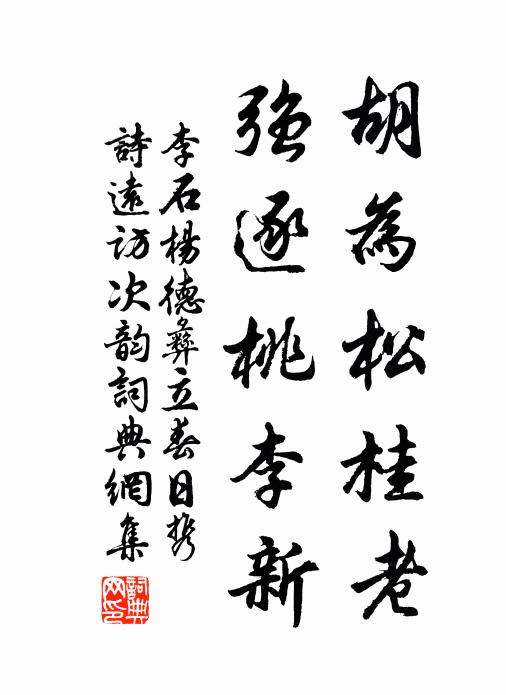 胡為松桂老
強逐桃李新
李石楊德彝立春日携
詩遠訪次韵詞典網集
詞典網印